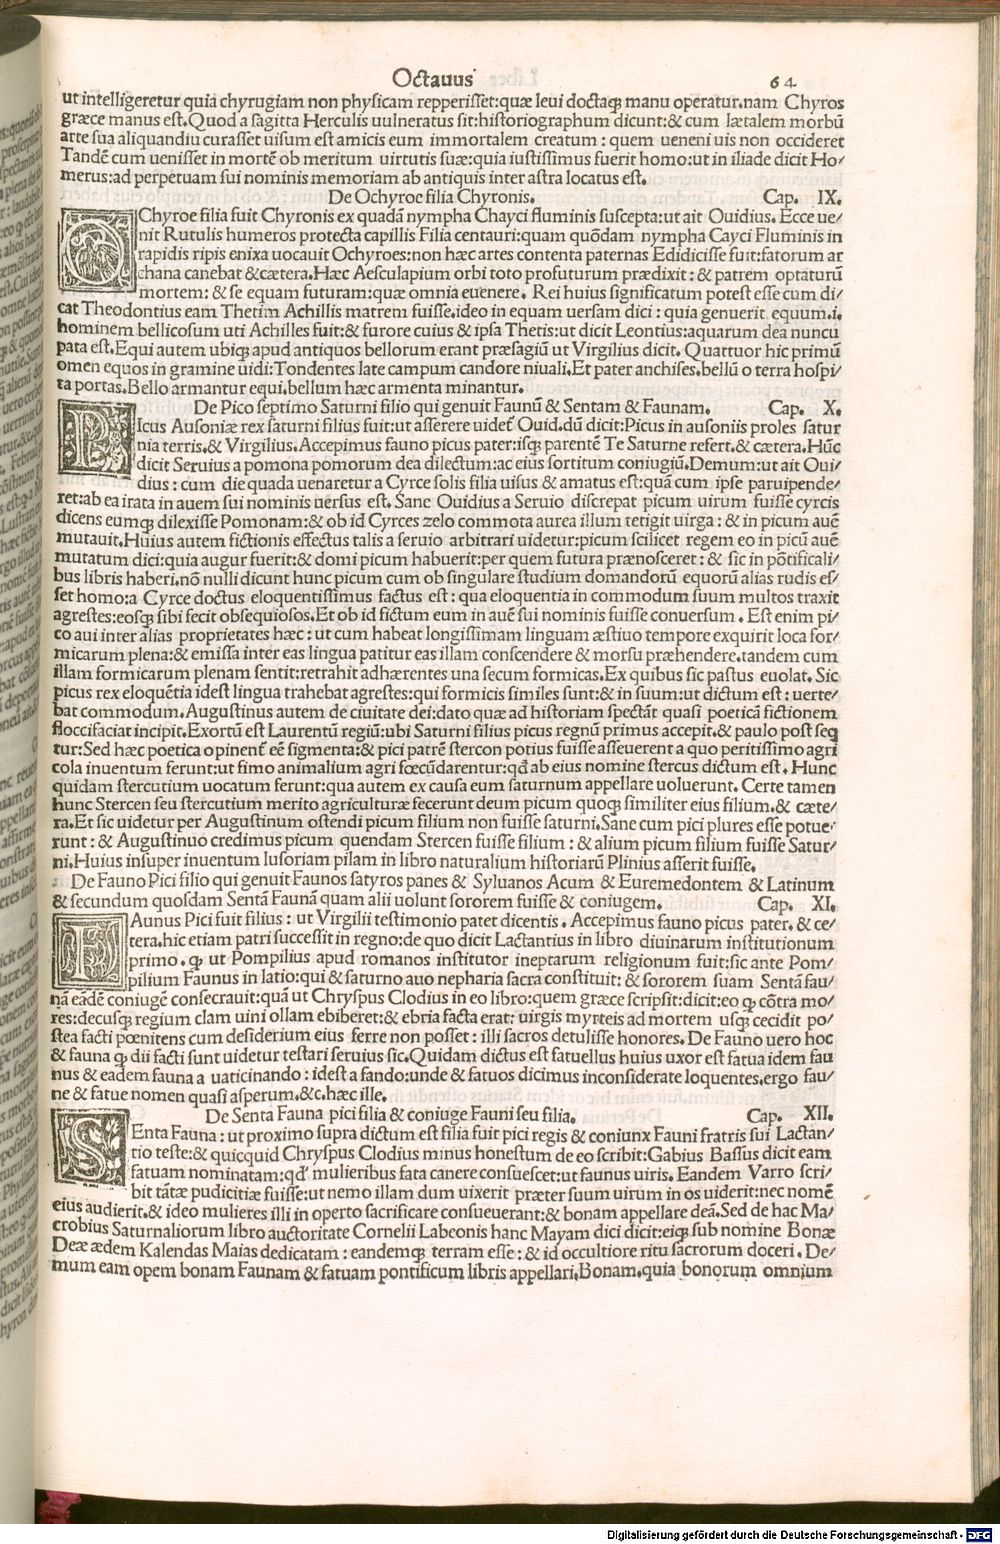 Octauus 64
ut intelligeretur quia chyrugiam non physicam repperisset:quæ leui doctaq; manu operatur.nam Chyros
græce manus est.Quod a sagitta Herculis uulneratus sit:historiographum dicunt:& cum lætalem morbū
arte sua aliquandiu curasset uisum est amicis eum immortalem creatum : quem ueneni uis non occideret
Tandē cum uenisset in mortē ob meritum uirtutis suæ:quia iustissimus fuerit homo:ut in iliade dicit Ho/
merus:ad perpetuam sui nominis memoriam ab antiquis inter astra locatus est.
De Ochyroe filia Chyronis. Cap. IX.
OChyroe filia fuit Chyronis ex quadā nympha Chayci fluminis suscepta:ut ait Ouidius. Ecce ue/
nit Rutulis humeros protecta capillis Filia centauri:quam quōdam nympha Cayci Fluminis in
rapidis ripis enixa uocauit Ochyroes:non hæc artes contenta paternas Edidicisse fuit:fatorum ar
chana canebat &cætera.Hæc Aesculapium orbi toto profuturum prædixit : & patrem optaturū
mortem: & se equam futuram:quæ omnia euenere. Rei huius significatum potest esse cum di/
cat Theodontius eam Thetim Achillis matrem fuisse.ideo in equam uersam dici : quia genuerit equum.i.
hominem bellicosum uti Achilles fuit:& furore cuius & ipsa Thetis:ut dicit Leontius:aquarum dea nuncu
pata est.Equi autem ubiq; apud antiquos bellorum erant præsagiū ut Virgilius dicit. Quattuor hic primū
omen equos in gramine uidi:Tondentes late campum candore niuali.Et pater anchises.bellū o terra hospi/
ta portas.Bello armantur equi.bellum hæc armenta minantur.
De Pico septimo Saturni filio qui genuit Faunū & Sentam & Faunam. Cap. X.
PIcus Ausoniæ rex saturni filius fuit:ut asserere uidet̄ Ouid.dū dicit:Picus in ausoniis proles satur
nia terris.& Virgilius.Accepimus fauno picus pater:isq; parentē Te Saturne refert.& cætera.Hūc
dicit Seruius a pomona pomorum dea dilectum:ac eius sortitum coniugiū.Demum:ut ait Oui/
dius : cum die quada uenaretur a Cyrce solis filia uisus & amatus est:quā cum ipse paruipende/
ret:ab ea irata in auem sui nominis uersus est. Sane Ouidius a Seruio discrepat picum uirum fuisse cyrcis
dicens eumq; dilexisse Pomonam:& ob id Cyrces zelo commota aurea illum tetigit uirga : & in picum auē
mutauit.Huius autem fictionis effectus talis a seruio arbitrari uidetur:picum scilicet regem eo in picū auē
mutatum dici:quia augur fuerit:& domi picum habuerit:per quem futura prænosceret : & sic in pōtificali/
bus libris haberi.nō nulli dicunt hunc picum cum ob singulare studium domandorū equorū alias rudis es/
set homo:a Cyrce doctus eloquentissimus factus est : qua eloquentia in commodum suum multos traxit
agrestes:eosq; sibi fecit obsequiosos.Et ob id fictum eum in auē sui nominis fuisse conuersum . Est enim pi/
co aui inter alias proprietates hæc : ut cum habeat longissimam linguam æstiuo tempore exquirit loca for/
micarum plena:& emissa inter eas lingua patitur eas illam conscendere & morsu præhendere.tandem cum
illam formicarum plenam sentit:retrahit adhærentes una secum formicas.Ex quibus sic pastus euolat. Sic
picus rex eloquētia idest lingua trahebat agrestes:qui formicis similes sunt:& in suum:ut dictum est : uerte/
bat commodum.Augustinus autem de ciuitate dei:dato quæ ad historiam spectāt quasi poeticā fictionem
floccifaciat incipit.Exortū est Laurentū regiū:ubi Saturni filius picus regnū primus accepit.& paulo post seq
tur:Sed hæc poetica opinent̄ eē sigmenta:& pici patrē stercon potius fuisse asseuerent a quo peritissimo agri
cola inuentum ferunt:ut fimo animalium agri fœcūdarentur:qd̄ ab eius nomine stercus dictum est. Hunc
quidam stercutium uocatum ferunt:qua autem ex causa eum saturnum appellare uoluerunt. Certe tamen
hunc Stercen seu stercutium merito agriculturæ fecerunt deum picum quoq; similiter eius filium.& cæte/
ra.Et sic uidetur per Augustinum ostendi picum filium non fuisse saturni.Sane cum pici plures esse potue/
runt : & Augustinuo credimus picum quendam Stercen fuisse filium : & alium picum filium fuisse Satur/
ni.Huius insuper inuentum lusoriam pilam in libro naturalium historiarū Plinius asserit fuisse.
De Fauno Pici filio qui genuit Faunos satyros panes & Syluanos Acum & Euremedontem & Latinum
& secundum quosdam Sentā Faunā quam alii uolunt sororem fuisse & coniugem. Cap. XI.
FAunus Pici fuit filius : ut Virgilii testimonio patet dicentis . Accepimus fauno picus pater. & ce/
tera.hic etiam patri successit in regno:de quo dicit Lactantius in libro diuinarum institutionum
primo. ꝙ ut Pompilius apud romanos institutor ineptarum religionum fuit:sic ante Pom/
pilium Faunus in latio:qui & saturno auo nepharia sacra constituit: & sororem suam Sentā fau/
nā eadē coniugē consecrauit:quā ut Chryspus Clodius in eo libro:quem græce scripsit:dicit:eo ꝙ cōtra mo/
res:decusq; regium clam uini ollam ebiberet:& ebria facta erat: uirgis myrteis ad mortem usq; cecidit po/
stea facti pœnitens cum desiderium eius ferre non posset : illi sacros detulisse honores. De Fauno uero hoc
& fauna ꝙ dii facti sunt uidetur testari seruius sic.Quidam dictus est fatuellus huius uxor est fatua idem fau
nus & eadem fauna a uaticinando : idest a fando:unde & fatuos dicimus inconsiderate loquentes.ergo fau/
ne & fatue nomen quasi asperum.&c.hæc ille.
De Senta Fauna pici filia & coniuge Fauni seu filia. Cap. XII.
SEnta Fauna : ut proximo supra dictum est filia fuit pici regis & coniunx Fauni fratris sui Lactan/
tio teste:& quicquid Chryspus Clodius minus honestum de eo scribit: Gabius Bassus dicit eam
fatuam nominatam:qd̄ mulieribus fata canere consuescet:ut faunus uiris. Eandem Varro scri/
bit tātæ pudicitiæ fuisse:ut nemo illam dum uixerit præter suum uirum in os uiderit:nec nomē
eius audierit.& ideo mulieres illi in operto sacrificare consueuerant:& bonam appellare deā.Sed de hac Ma/
crobius Saturnaliorum libro auctoritate Cornelii Labeonis hanc Mayam dici dicit:eiq; sub nomine Bonæ
Deæ ædem Kalendas Maias dedicatam : eandemq; terram esse : & id occultiore ritu sacrorum doceri . De/
mum eam opem bonam Faunam & fatuam pontificum libris appellari.Bonam.quia bonorum omnium
Digitalisierung gefördert durch die Deutsche Forschungsgemeinschaft - DFG